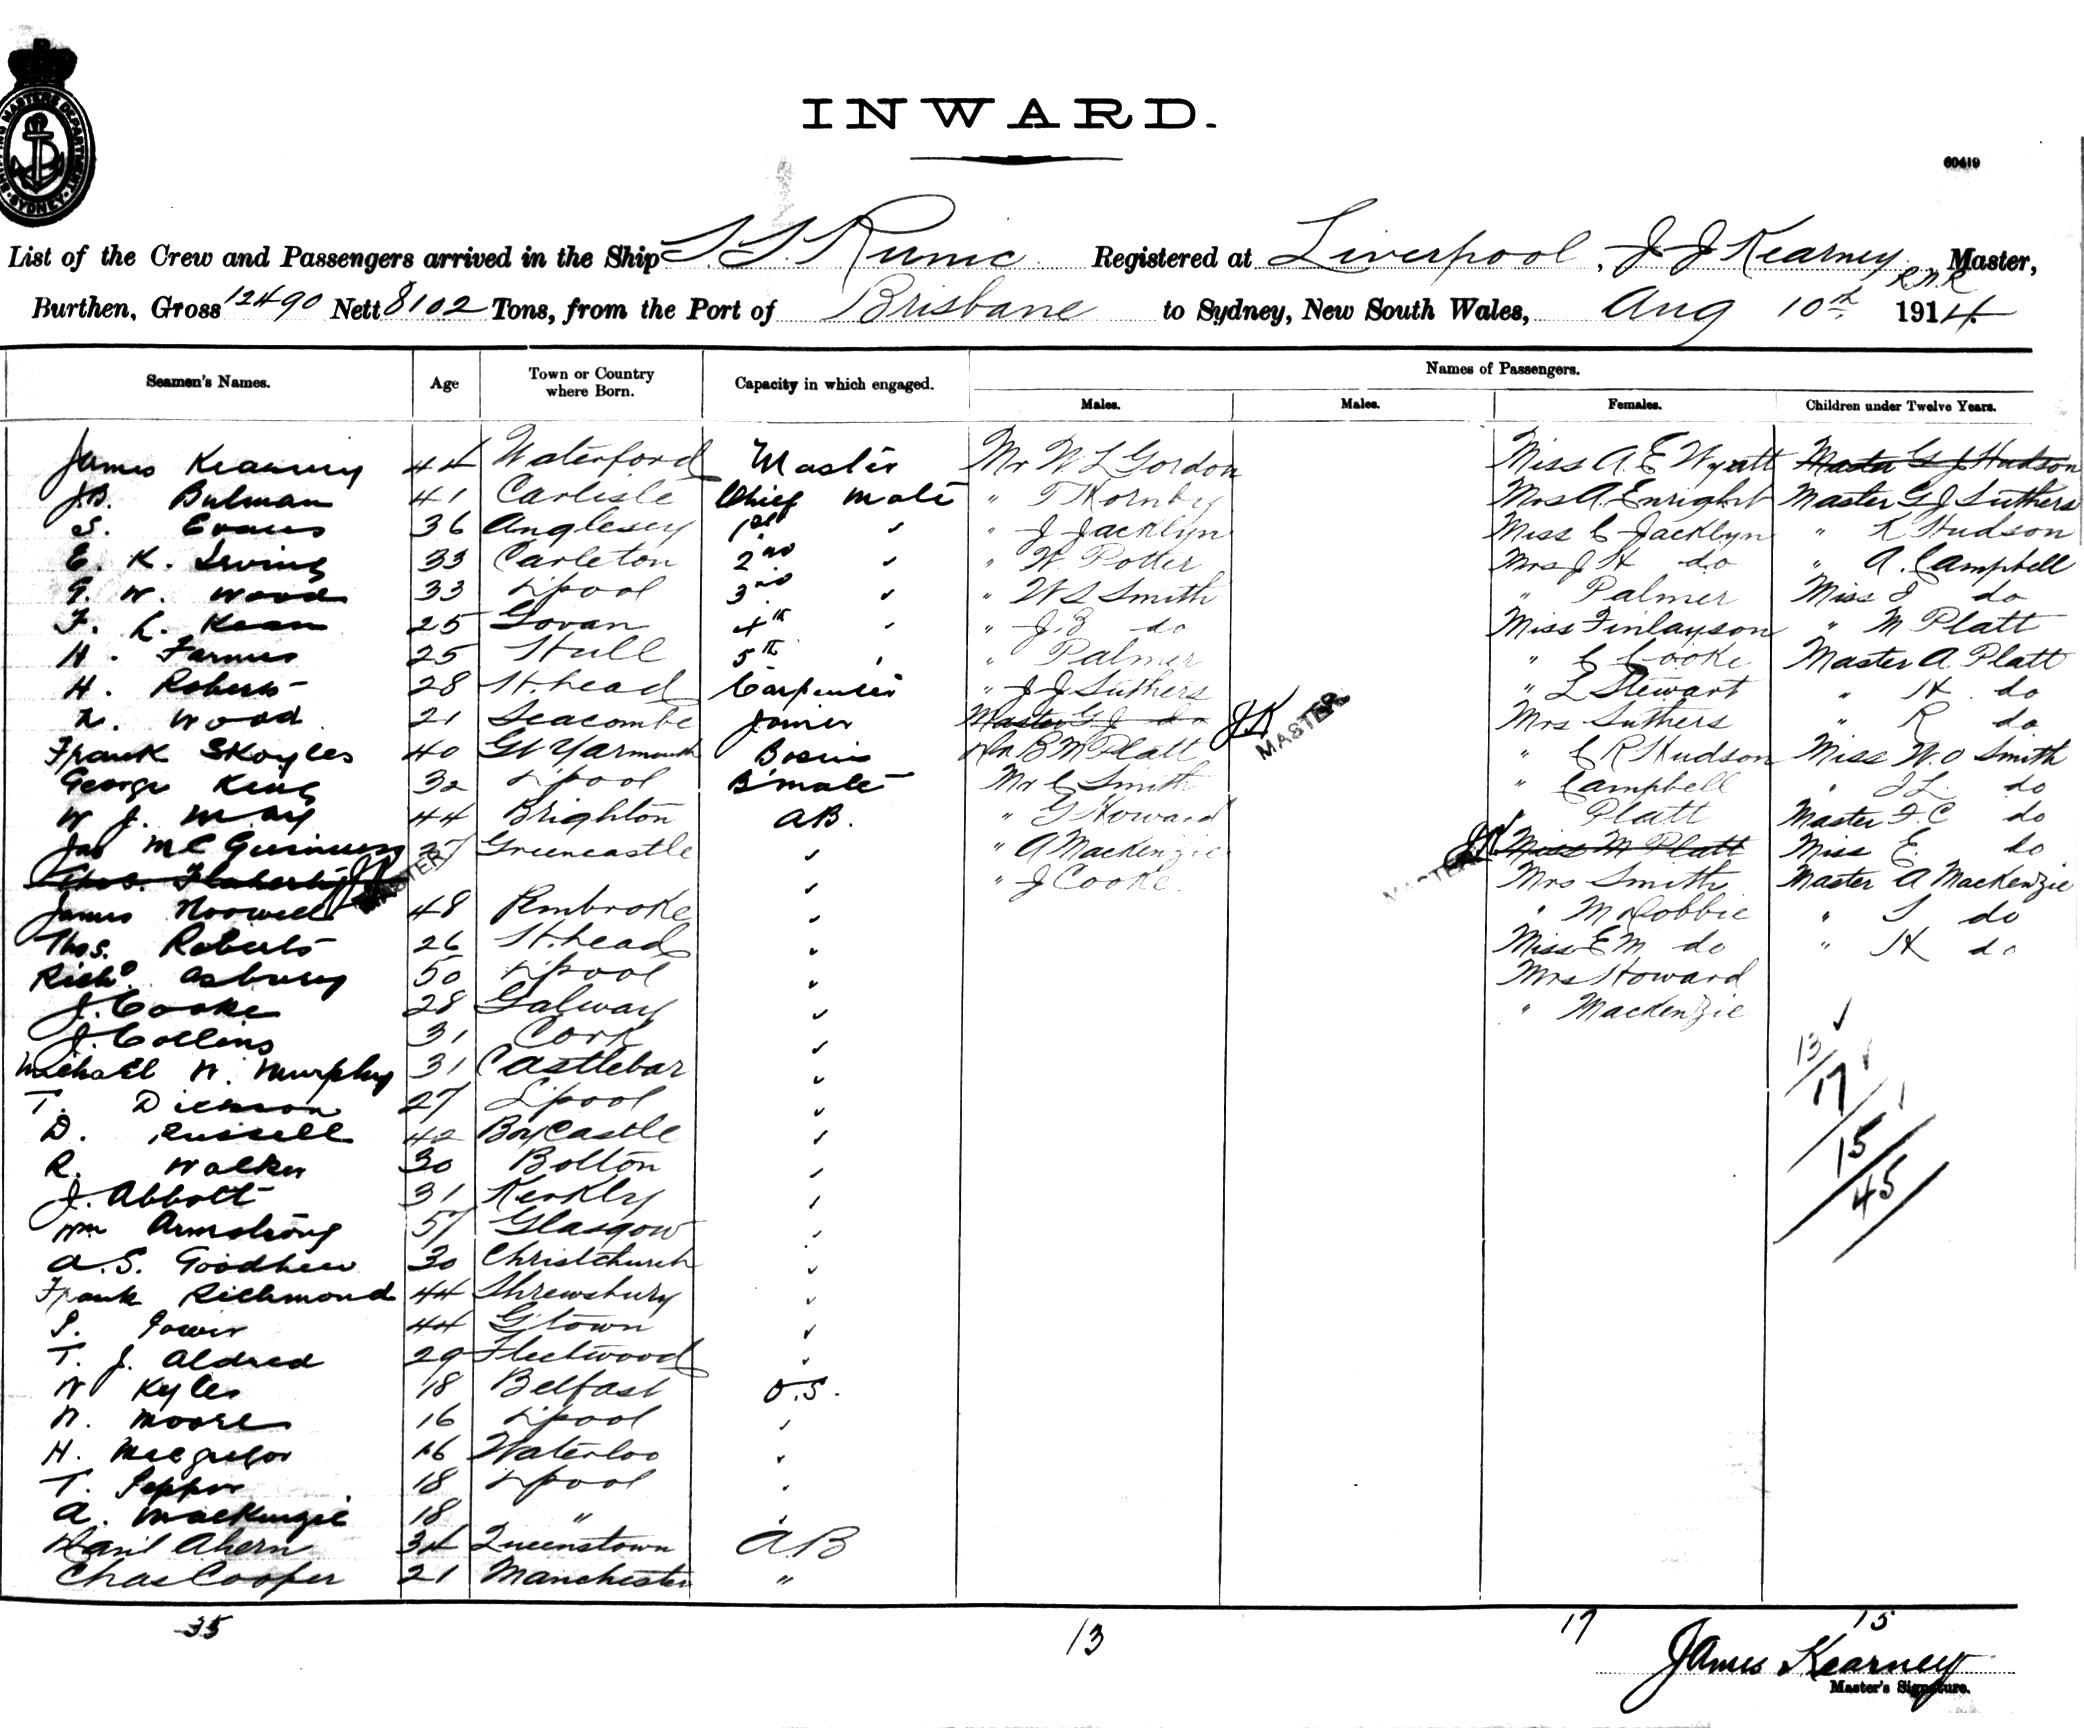 INWARD.
60419
List of the Crew and Passengers arrived in the Ship S.S. Runic Registered at Liverpool, J J Kearney R.N.R Master,
Burthen, Gross 12490 Nett 8102 Tons, from the Port of Brisbane to Sydney, New South Wales, Aug 10th 1914
Names of Passengers.
Seamen's Names. Age Town or Country where Born. Capacity in which engaged. Males. Males. Females. Children under Twelve Years.
James Kearney 44 Waterford Master Mr W L Gordon Miss A. E Wyatt Master G J Hudson
J.B. Bulman 41 Carlisle Chief Mate " T Hornby Mrs A. Enright Master G J Suthers
S. Evans 36 Anglesey 1st " " J Jacklyn Miss C Jacklyn " R Hudson
E. K. Irving 33 Carleton 2nd " " W. Potter Mrs J H do " A. Campbell
G. W. Wood 33 L'pool 3rd " " W S Smith " Palmer Miss J do
F. L. Kean 25 Govan 4th " " J. do Miss Finlayson " M Platt
H. Farmes 25 Hull 5th " " Palmer " C Cooke Master A Platt
H. Roberts 28 H.head Carpenter " J J Suthers " L Stewart " H do
R. Wood 21 Seacombe Joiner Master G J do JK MASTER Mrs Suthers " R do
Frank Skoyles 40 Gt Yarmouth Bosun B M Platt " C R Hudson Miss W. O Smith
George King 32 L'pool B'mate Mr C Smith " Campbell " J L do
W J. May 44 Brighton AB. " G Howard Platt Master F. C do
Jas McGuinness 27 Greencastle " " A Mackenzie JK Miss M Platt Miss E. do
Thos. Flaherty JK MASTER " " J Cooke MASTER Mrs Smith Master A Mackenzie
James Norwell 48 Pembroke " " McRobbie " do
Thos. Roberts 26 H.head " Miss E M do " H do
Richd. Asbury 50 L'pool " Mrs Howard
J. Cooke 28 Galway " " Mackenzie
J. Collins 31 Cork " 13
Michael N. Murphy 31 Castlebar " 17
T. Dickson 27 L'pool "
D. Russell 42 Boycastle " 15
R. Walker 30 Bolton "
J. Abbott 31 Kerkly " 45
Wm Armstrong 57 Glasgow "
A. S. Goodhew 30 Christchurch "
Frank Richmond 44 Shrewsbury "
P. Power 44 G'town "
T. J. Aldred 29 Fleetwood "
W Kyles 18 Belfast O.S.
N. Moore 16 L'pool "
H. McGregor 16 Waterloo "
T. Pepper 18 L'pool "
A. Mackenzie 18 " "
Danl Ahern 34 Queenstown A.B
Chas Cooper 21 Manchester "
35 13 17 15
James Kearney
Master's Signature.